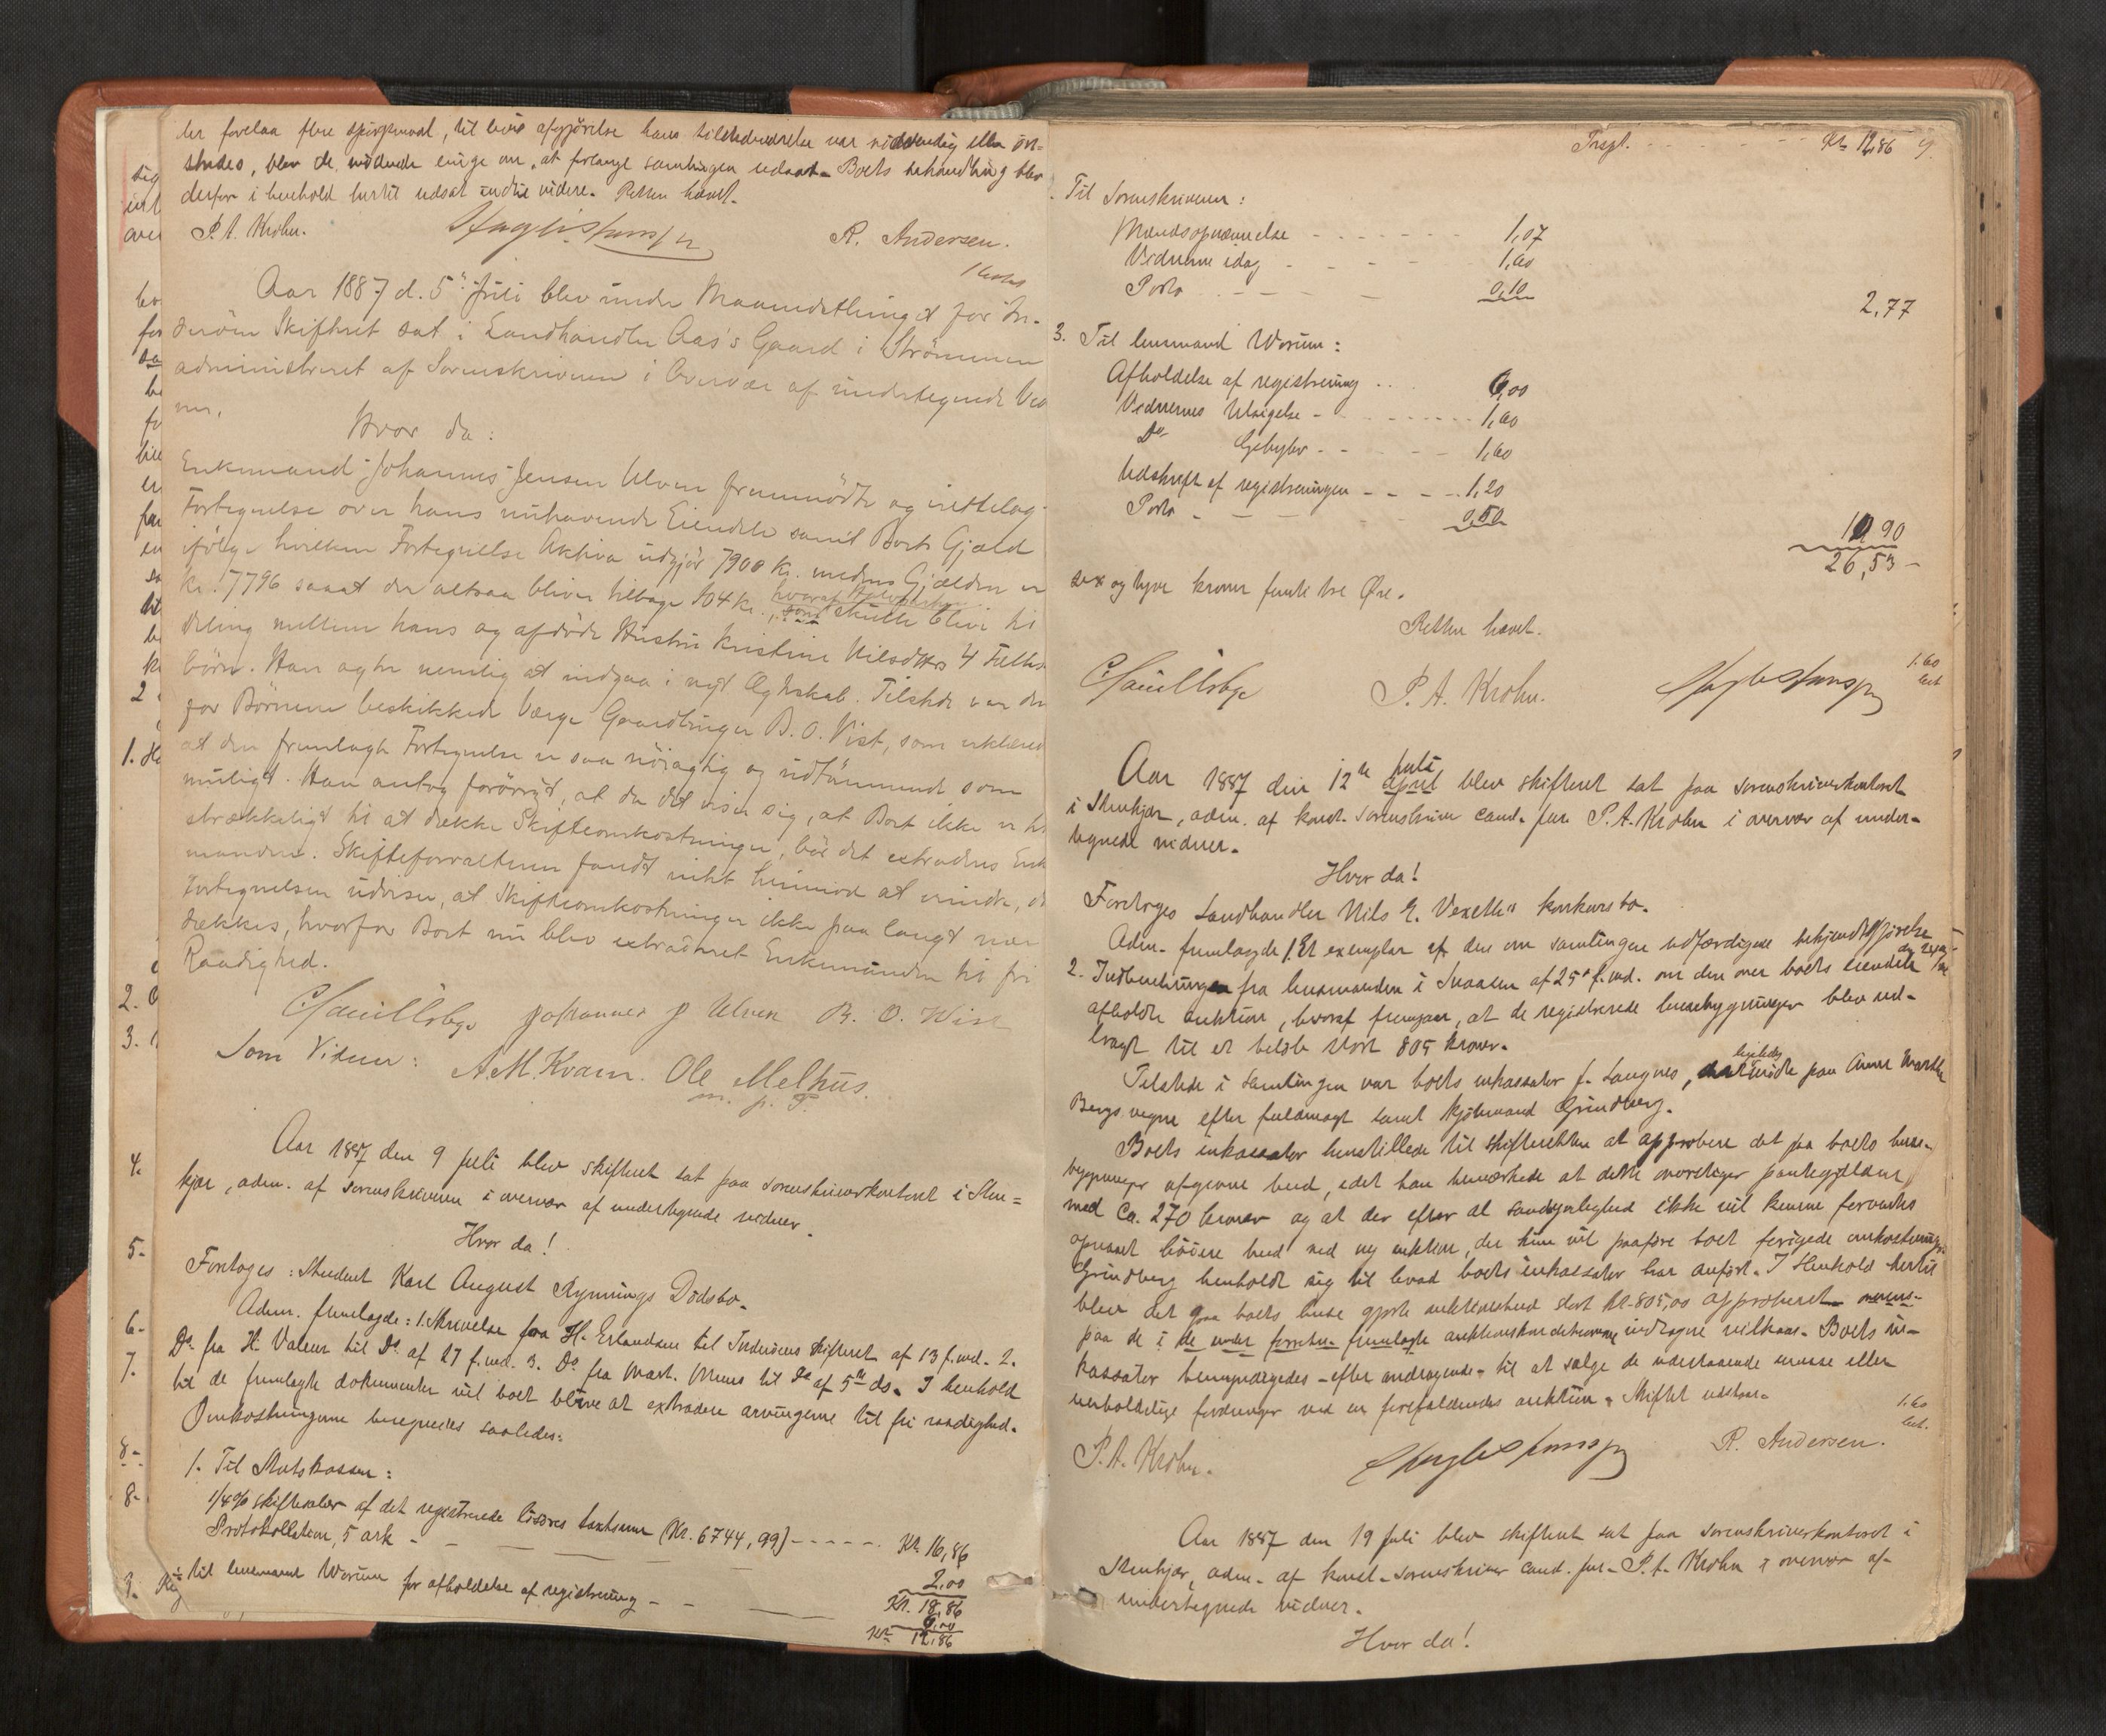 der forelaa flere spørgsmaal, til hvis afgjørelse hans tilstedeværelse var nødvendig eller øn-
skedes, blev de mødende enige om at forlange samlingen udsat. Boets behandling blev
derfor i henhold hertil udsat indtil videre. Retten hævet.
P. A. Krohn. R. Andersen.
Aar 1887 d. 5te Juli blev under Maanedsthinget for In-
derøen Skifteret sat i Landhandler Aas's Gaard i Strømmen
administreret af Sorenskriveren i Overvær af undertegnede Vid
ner.
Hvor da:
Enkemand Johannes Jensen Ulven fremmødte og irettelag
Fortegnelse over hans inhavende Eiendele samt Boets Gjæld
ifølge hvilken Fortegnelse Aktiva udgjør 7900 Kr. medens Gjælden er
Kr. 7796 saaat der altsaa bliver tilbage 104 Kr., som skulle blive til
deling mellem hans og afdøde Hustru Kristine Nilsdtrs 4 Fælles
børn. Han agter nemlig at indgaa i nyt Ægteskab. Tilstede var den
for Børnene beskikkede Værge Gaardbruger B. O. Vist, som erklæred
at den fremlagte Fortegnelse er saa nøiagtig og udtømmende som
muligt. Han antog forøvrigt, at da det viser sig, at Boet ikke er til
strækkeligt til at dække Skifteomkostninger, bør det extraderes Enke
manden. Skifteforvalteren fandt intet herimod at erindre, da
Fortegnelsen udviser, at Skifteomkostninger ikke paa langt nær
dækkes, hvorfor Boet nu blev extraderet Enkemanden til fri
Raadighed.
Johannes J Ulven B. O. Wist
Som Vidner: A. M. Kvam. Ole Melhus.
m. p. P.
Aar 1887 den 9 juli blev skifteret sat paa sorenskriverkontoret i Sten=
kjær, adm. af sorenskriveren i overvær af undertegnede vidner.
Hvor da!
Foretoges: Student Karl August Rynnings Dødsbo.
Adm. fremlagde: 1. Skrivelse fra H. Erlandsen til Inderøens skifteret af 13 f. md. 2.
Do fra H. Valeur til Do af 27 f. md. 3. Do fra Mart. Mens til Do af 5te ds. I henhold
til de fremlagte dokumenter vil boet blive at extradere arvingerne til fri raadighed.
Omkostningerne beregnedes saaledes:
1. Til Statskassen:
1/4% skifteskat af det registrerede løsøres taxtsum (Kr. 6744,99) - - - - - Kr. 16,86
Protokollation, 5 ark - 2,00
Kr. 18,86
til lensmand Worum for afholdelse af registrering - - 6,00
Kr. 12,86
Trspt. - - - - Kr. 12,86
Til Sorenskriveren:
Mændsopnævnelse - - - - 1,07
Vidnerne idag - - - 1,60
Porto - - - 0,10
2,77
3. Til lensmand Worum:
Afholdelse af registrering . . 6,00
Vidnernes Utsigelse - 1,60
Do Gebyhr - - 1,60
Udskrift af registreringen - - - - 1,20
Porto - 0,50
10,90
26,53 -
sex og tyve kroner femti tre Øre.
Retten hævet.
P. A. Krohn.
1.60
Aar 1887 den 12te juli april blev skifteret sat paa sorenskriverkontoret
i Stenkjær, adm. af konst. sorenskriver cand. jur. P. A. Krohn i overvær af under-
tegnede vidner.
Hvor da!
Foretoges Landhandler Nils E. Vexellens konkursbo.
Adm. fremlagde 1. Et exemplar af den om samlingen udfærdigede bekjendtgjørelse
2. Indberetningen fra lensmanden i Snaasen af 25de f. md. om den over boets eiendele
afholdte auktion, hvoraf fremgaar, at de registrerede husebygninger blev ud-
bragt til et beløb stort 805 kroner.
Tilstede i samlingen var boets inkassator J. Langnes, der ligeledes mødte paa Anne Marthe
Bergs vegne efter fuldmagt samt kjøbmand Grindberg.
Boets inkassator henstillede til skifteretten at approbere det paa boets huse-
bygninger afgivne bud, idet han bemærkede at dette overstiger pantegjælden
med ca. 270 kroner og at der efter al sandsynlighed ikke vil kunne forventes
opnaaet høiere bud ved ny auktion, der kun vil paaføre boet forøgede omkostninger.
Grindberg henholdt sig til hvad boets inkassator har anført. I Henhold hertil
blev det paa boets huse gjorte auktionsbud stort kr. 805,00 approberet overens-
paa de i de under forretn. fremlagte auktionskonditionerne indtagne vilkaar. Boets in-
kassator bemyndigedes - efter andragende - til at sælge de udestaaende uvisse eller
uerholdelige fordringer ved en forefaldende auktion. Skiftet udsattes.
1.60
P. A. Krohn. R. Andersen.
Aar 1887 den 19 juli blev skifteret sat paa sorenskriverkontoret i
Stenkjær, adm. af konst. sorenskriver cand. jur. P. A. Krohn i overvær af
undertegnede vidner.
Hvor da!